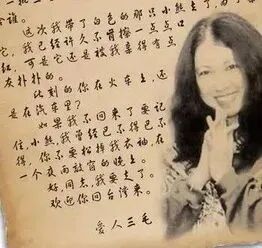 会睡。
这次我带了白色的那只小熊去了，为了亲
它，我已经许久不肯擦一点点口
红，可是它还是被我亲得有点
灰扑扑的。
此刻的你在火车上还
是在汽车里？
如果我不回来了，要记
住，小熊，我曾经巳不得巳不
得，你不要松掉我衣袖，在
一个夜雨敲窗的晚上。
好，同志，我要走了。
欢迎你回台湾来。
爱人三毛